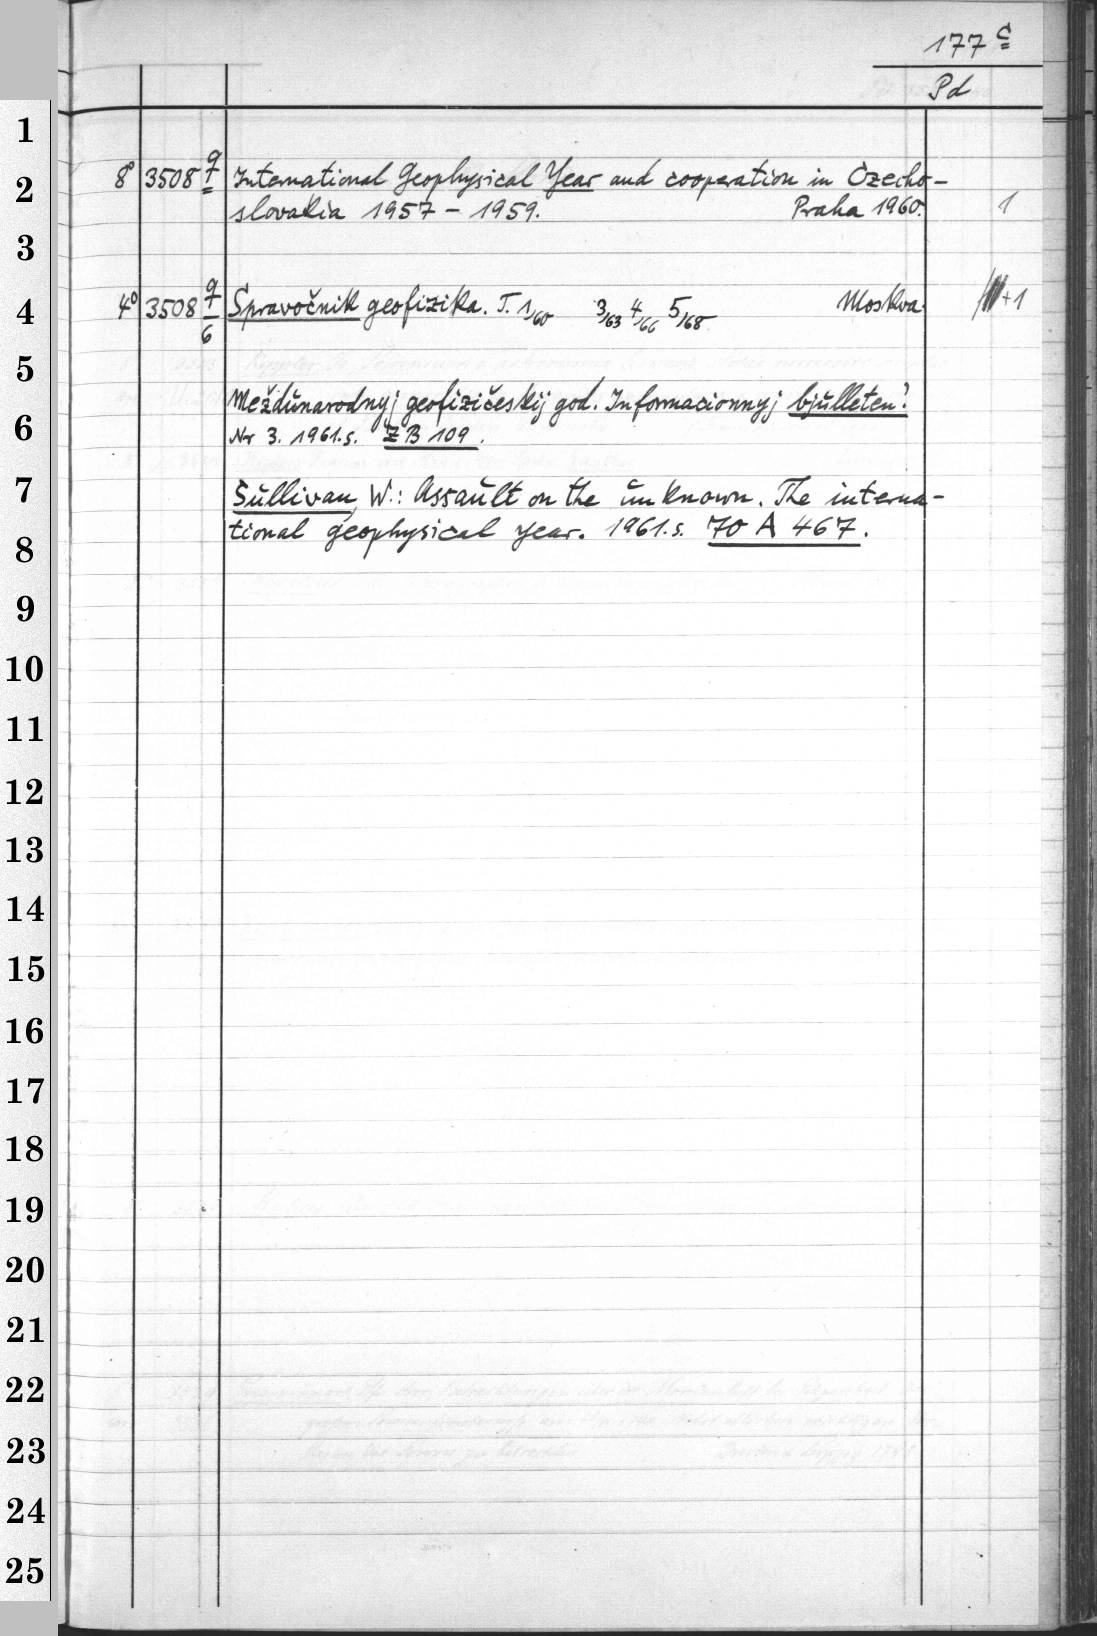 177 c
Pd
1
2
3
4
5
6
7
8
9
10
11
12
13
14
15
16
17
18
19
20
21
22
23
24
25
8° 3508 q International Geophysical Year and cooperation in Czecho-
slovakia 1957 - 1959. Praha 1960. 1
4° 3508 q/6 Spravočnik geofizika. T. 1/60 3/63 4/66 5/68 Moskva. +1
Meždunarodnyj geofizičeskij god. Informacionnyj bjulleten'.
Nr 3. 1961.s. ZB 109.
Sullivan, W.: Assault on the unknown. The interna-
tional geophysical year. 1961.s. 70 A 467.